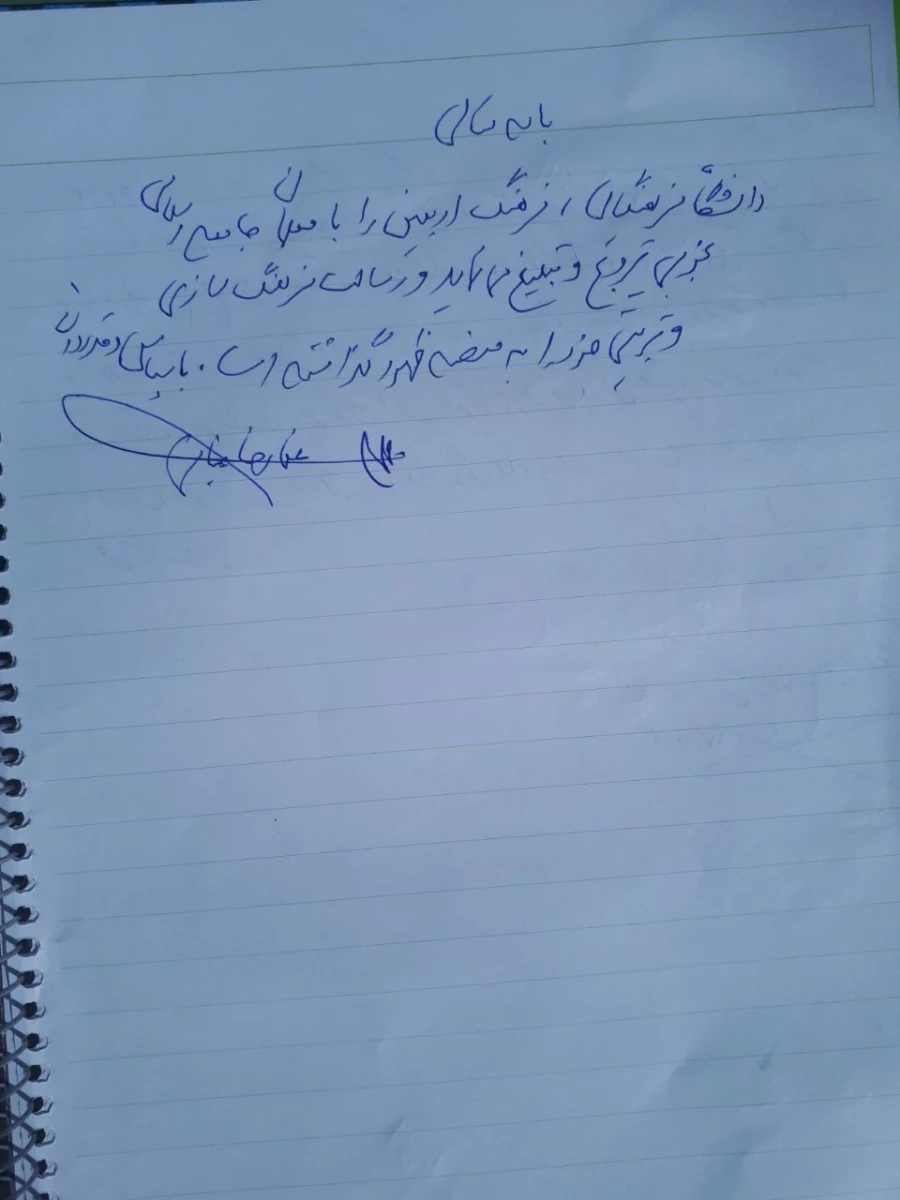 باسمه تعالی
دانشگاه فرهنگیان، فرهنگ اربعین را با معلمان جامعه اسلامی
بخوبی ترویج و تبلیغ می نماید و رسالت فرهنگ سازی
و تربیتی خود را به منصه ظهور گذاشته است. با سپاس و قدردانی
غلامرضا